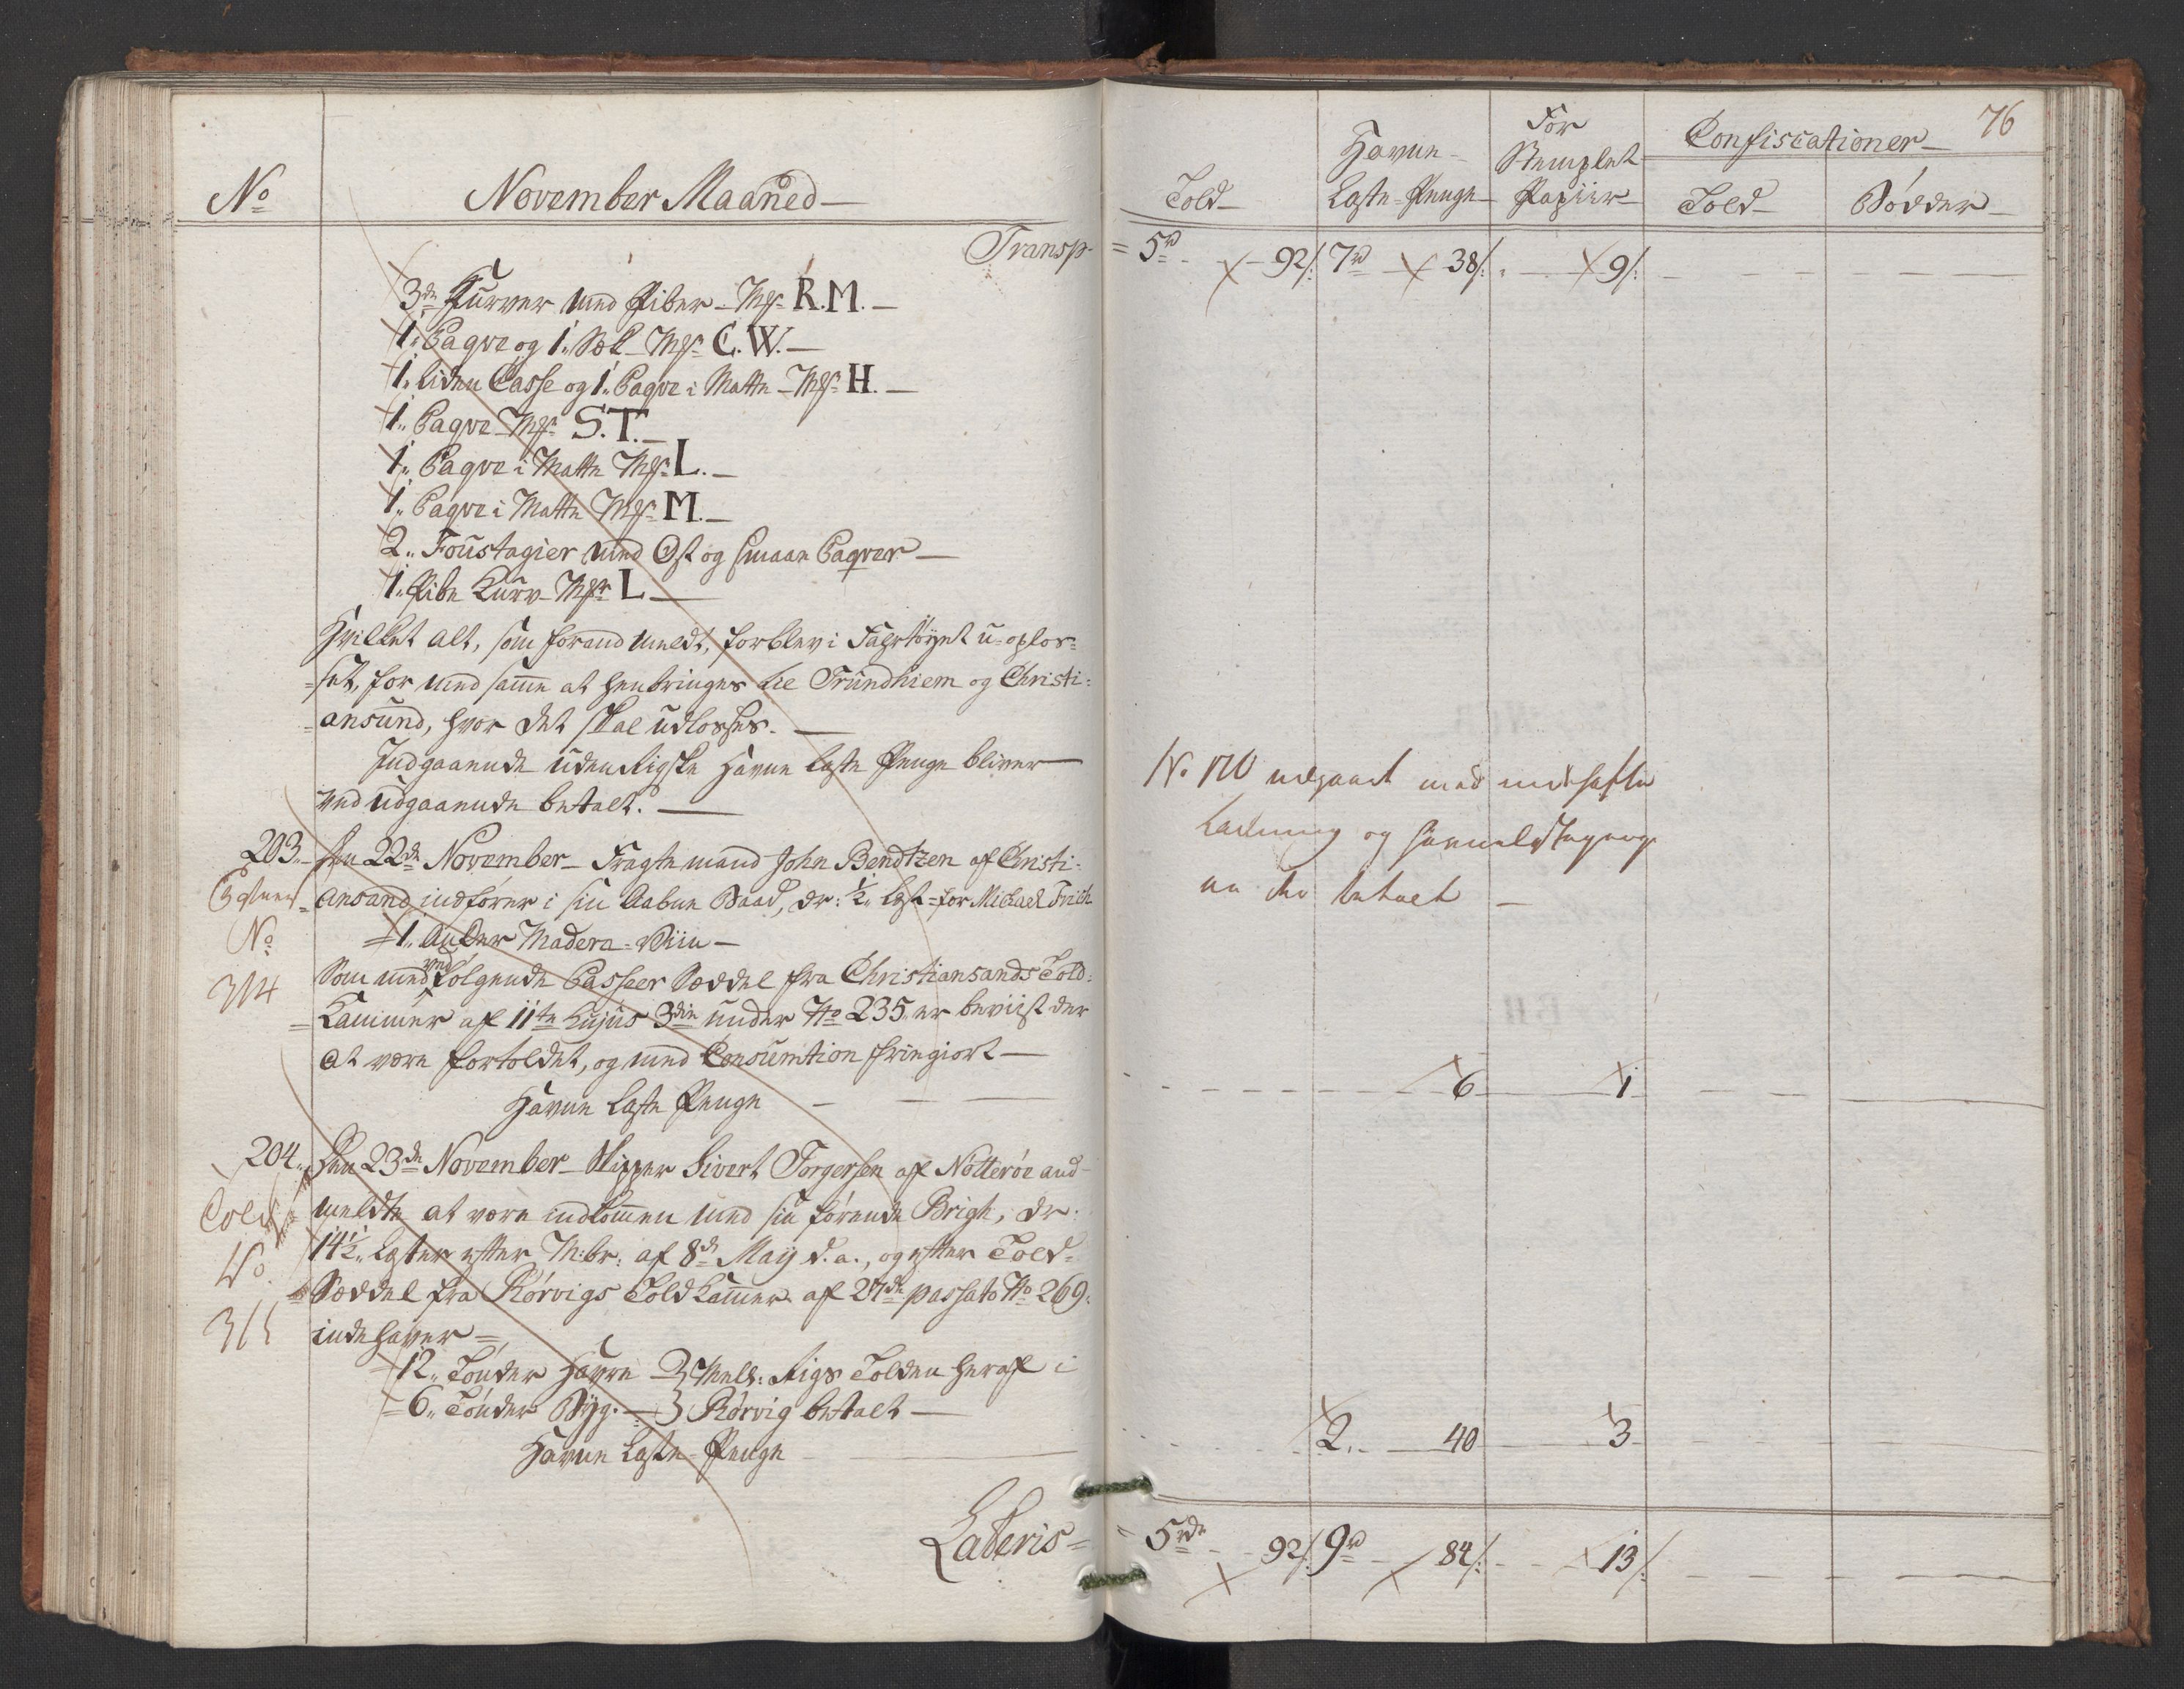 76
No
November Maaned
Told
Havne Laste-Penge
For Stemplet Papiir
Confiscationer
Told
Bøder
Transp. = 5rd 92/: 7rd 38/: 9/:
3de Kurver med Piber Mk: R.M.
1. Paqve og 1. Mk: C.W.
1. liden Casse og 1. Paqve i Matte Mk: H.
1. Paqve Mk: S.T.
1. Paqve i Matte Mk: L.
1. Paqve i Matte Mk: M.
2. Foustagier med Ost og smaae Paqver
1. Pibe Kurv Mk: L
Hvilket alt, som forandmeldt, forblev i Fartöyet u-oplos=
=set, for med samme at henbringes til Trundhiem og Christi=
=ansund, hvor det skal udlosses.
Indgaaende udenRigske Havne Laste Penge bliver
ved udgaaende betalt.
No 170 udgaaet med
Ladning og
betalt
203. Den 22de November Fragtemand John Bendtzen af Christi=
=ansand indfører i sin Aabne Baad, dr: ½ Læst for Michael Frich
No
314
1. Anker Madera-Viin
Som med ved følgende Passeer Seddel fra Christiansands Told=
=Kammer af 11te hujus 3die under No 235 er beviist der
at være fortoldet, og med Consumtion friegiort
Havne Laste Penge 6 1
204. Den 23de November Skipper Sivert Torgersen af Nötterøe and=
meldte at være indkommen med sin førende Brigh, dr:
Told
14½ Læster efter M:br: af 8de Maij d.a., og efter Told=
No
Seddel fra Rørvigs Toldkammer af 27de passato No 269.
315
indehaver
12. Tönder Havre } Mell: Rigs Tolden heraf i
6. Tönder Byg. } Rørvig betalt
Havne Laste-Penge 2. 40 3
Lateris = 5rd 92/: 9rd 84/: 13/: